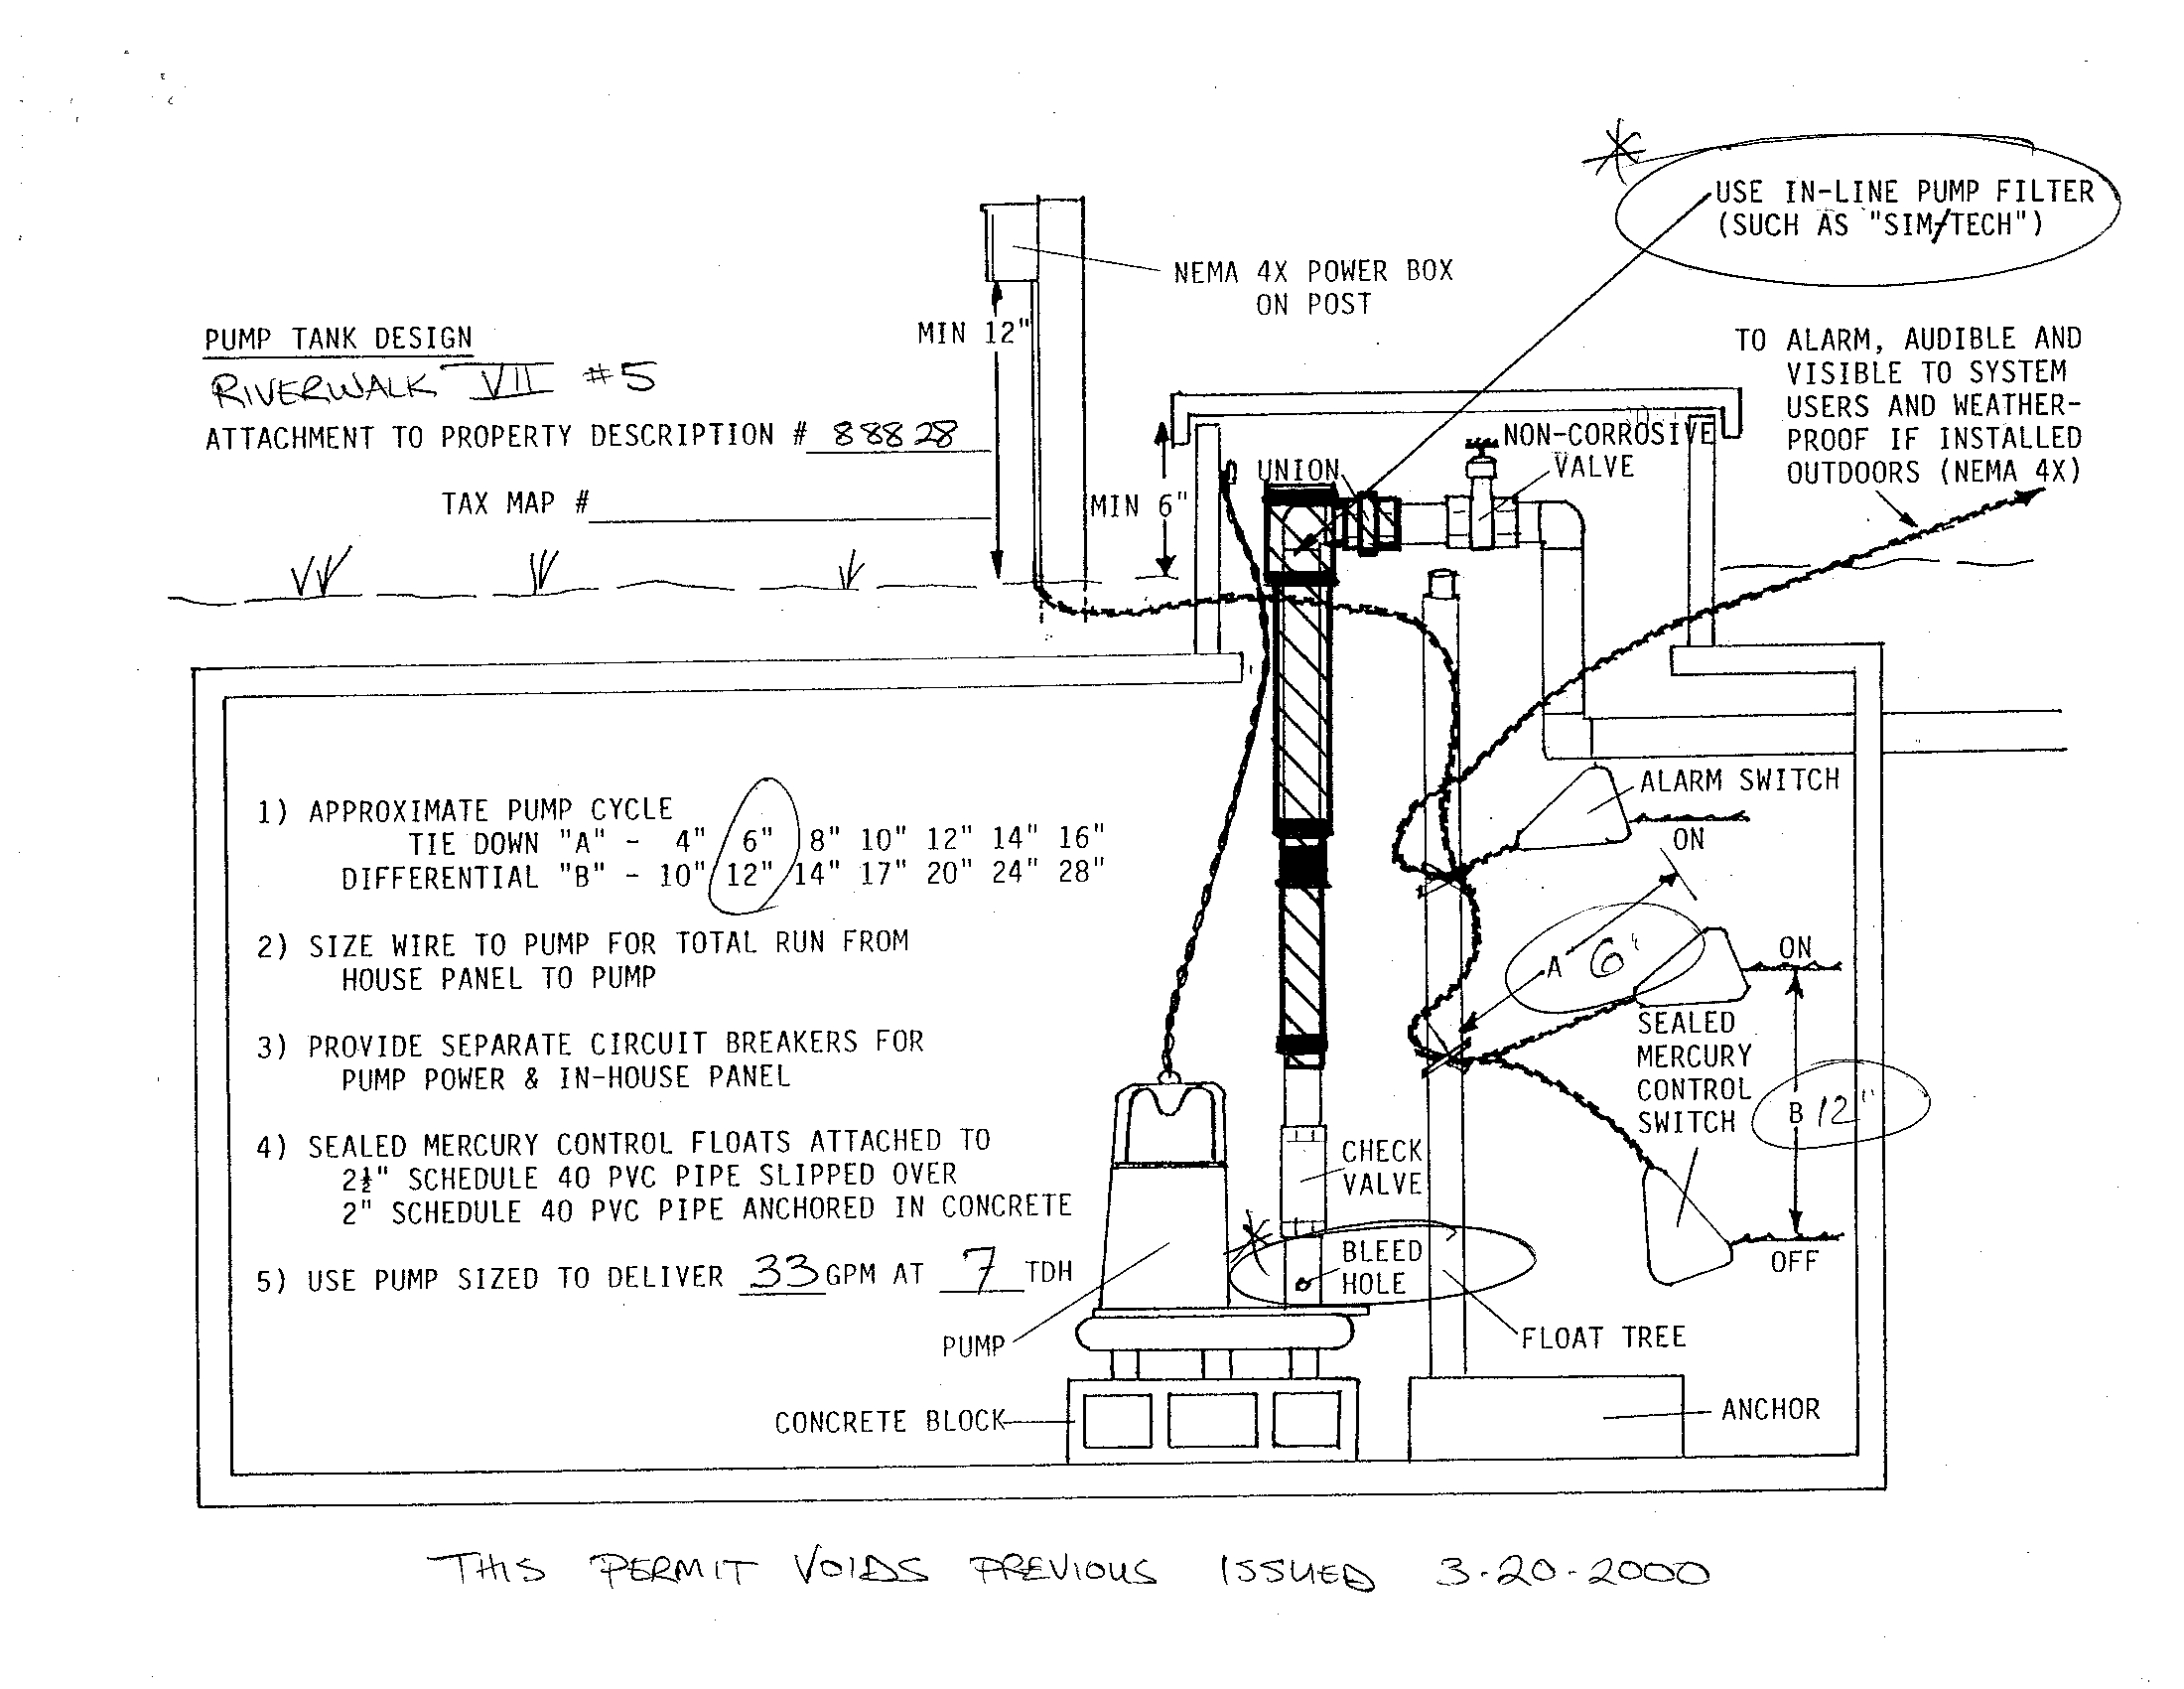 USE IN-LINE PUMP FILTER
(SUCH AS "SIM/TECH")
NEMA 4X POWER BOX
ON POST
MIN 12"
PUMP TANK DESIGN
RIVERWALK VII #5
ATTACHMENT TO PROPERTY DESCRIPTION # 88828
TAX MAP #
TO ALARM, AUDIBLE AND
VISIBLE TO SYSTEM
USERS AND WEATHER-
PROOF IF INSTALLED
OUTDOORS (NEMA 4X)
NON-CORROSIVE
VALVE
UNION
MIN 6"
1) APPROXIMATE PUMP CYCLE
TIE DOWN "A" - 4" 6" 8" 10" 12" 14" 16"
DIFFERENTIAL "B" - 10" 12" 14" 17" 20" 24" 28"
2) SIZE WIRE TO PUMP FOR TOTAL RUN FROM
HOUSE PANEL TO PUMP
3) PROVIDE SEPARATE CIRCUIT BREAKERS FOR
PUMP POWER & IN-HOUSE PANEL
4) SEALED MERCURY CONTROL FLOATS ATTACHED TO
2½" SCHEDULE 40 PVC PIPE SLIPPED OVER
2" SCHEDULE 40 PVC PIPE ANCHORED IN CONCRETE
5) USE PUMP SIZED TO DELIVER 33 GPM AT 7 TDH
ALARM SWITCH
ON
A 6"
ON
SEALED
MERCURY
CONTROL
SWITCH
B 12"
OFF
CHECK
VALVE
BLEED
HOLE
PUMP
FLOAT TREE
CONCRETE BLOCK
ANCHOR
THIS PERMIT VOIDS PREVIOUS ISSUED 3-20-2000